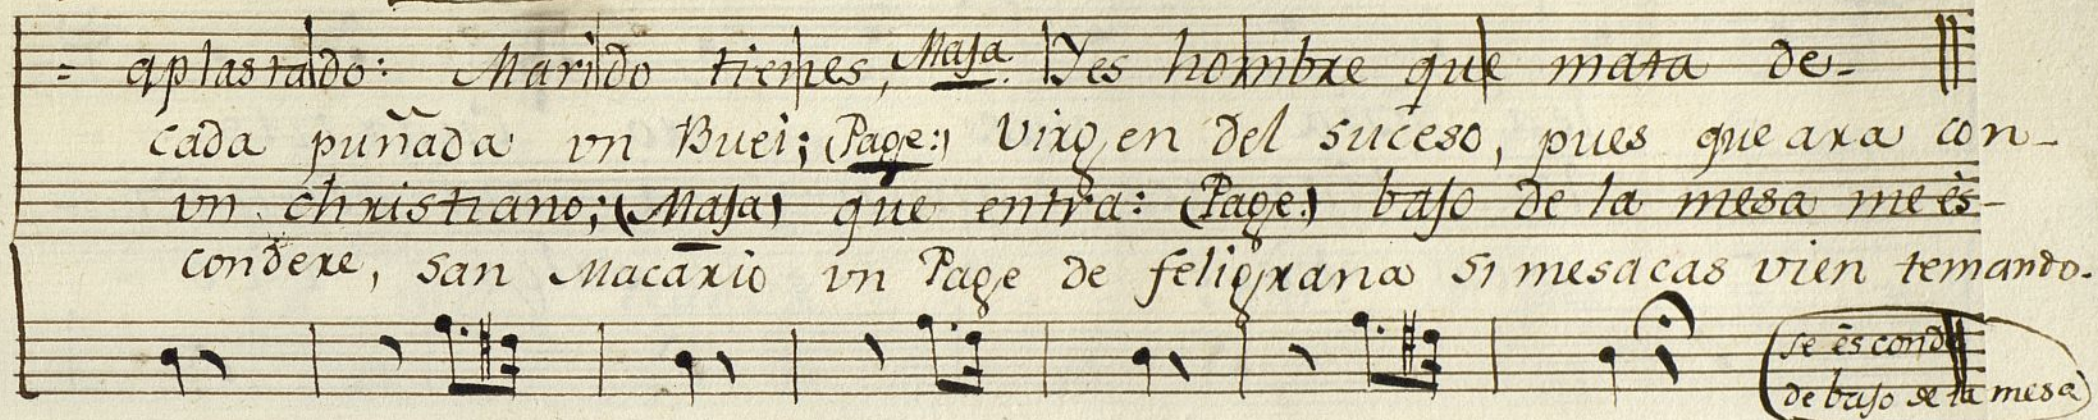 = aplastado: Marido tienes, Maja. Yes hombre que mata de-
cada puñada vn Buei; (Page:) Virgen del suceso, pues que ara con-
vn christiano; (Maja) que entra: (Page.) bajo de la mesa me ès-
condere, san Macario vn Page de feligrana si mesacas vien temando.
(se ès conde
de bajo de la mesa)